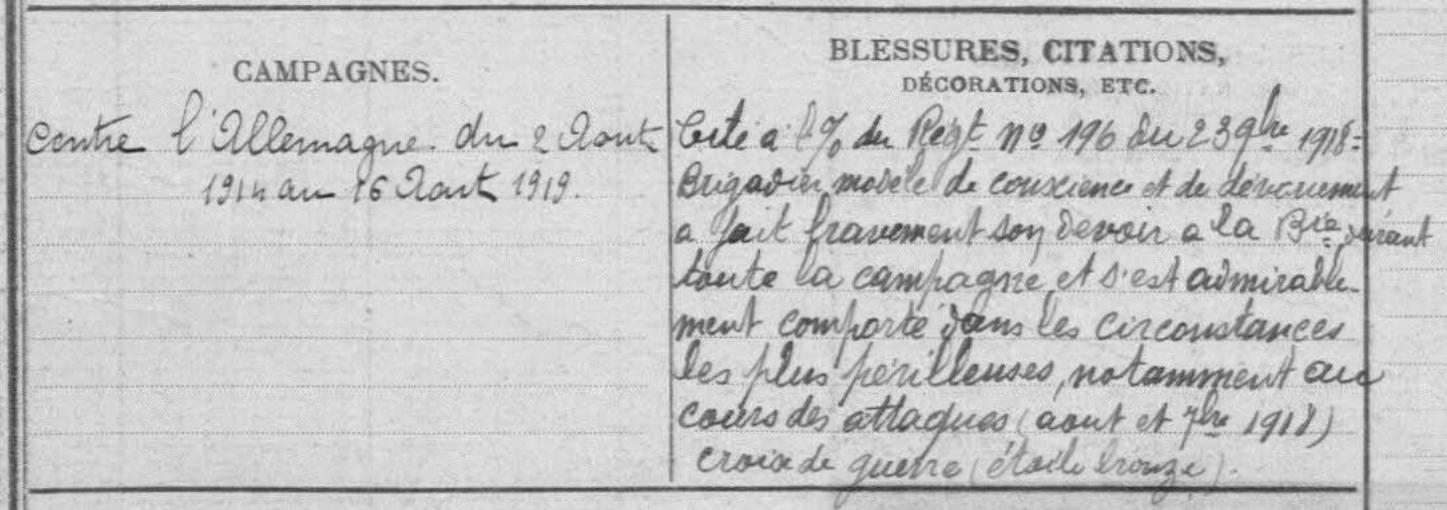 CAMPAGNES.
Contre l'Allemagne du 2 Aout
1914 au 16 Aout 1919.
BLESSURES, CITATIONS,
DÉCORATIONS, ETC.
Cité à l'% du Régt nº 196 du 23 9bre 1918:
Brigadier modèle de conscience et de dévouement
a fait bravement son devoir a la Brie durant
toute la campagne et s'est admirable-
ment comporté dans les circonstances
les plus périlleuses, notamment au
cours des attaques (aout et 7bre 1918)
croix de guerre (étoile bronze).